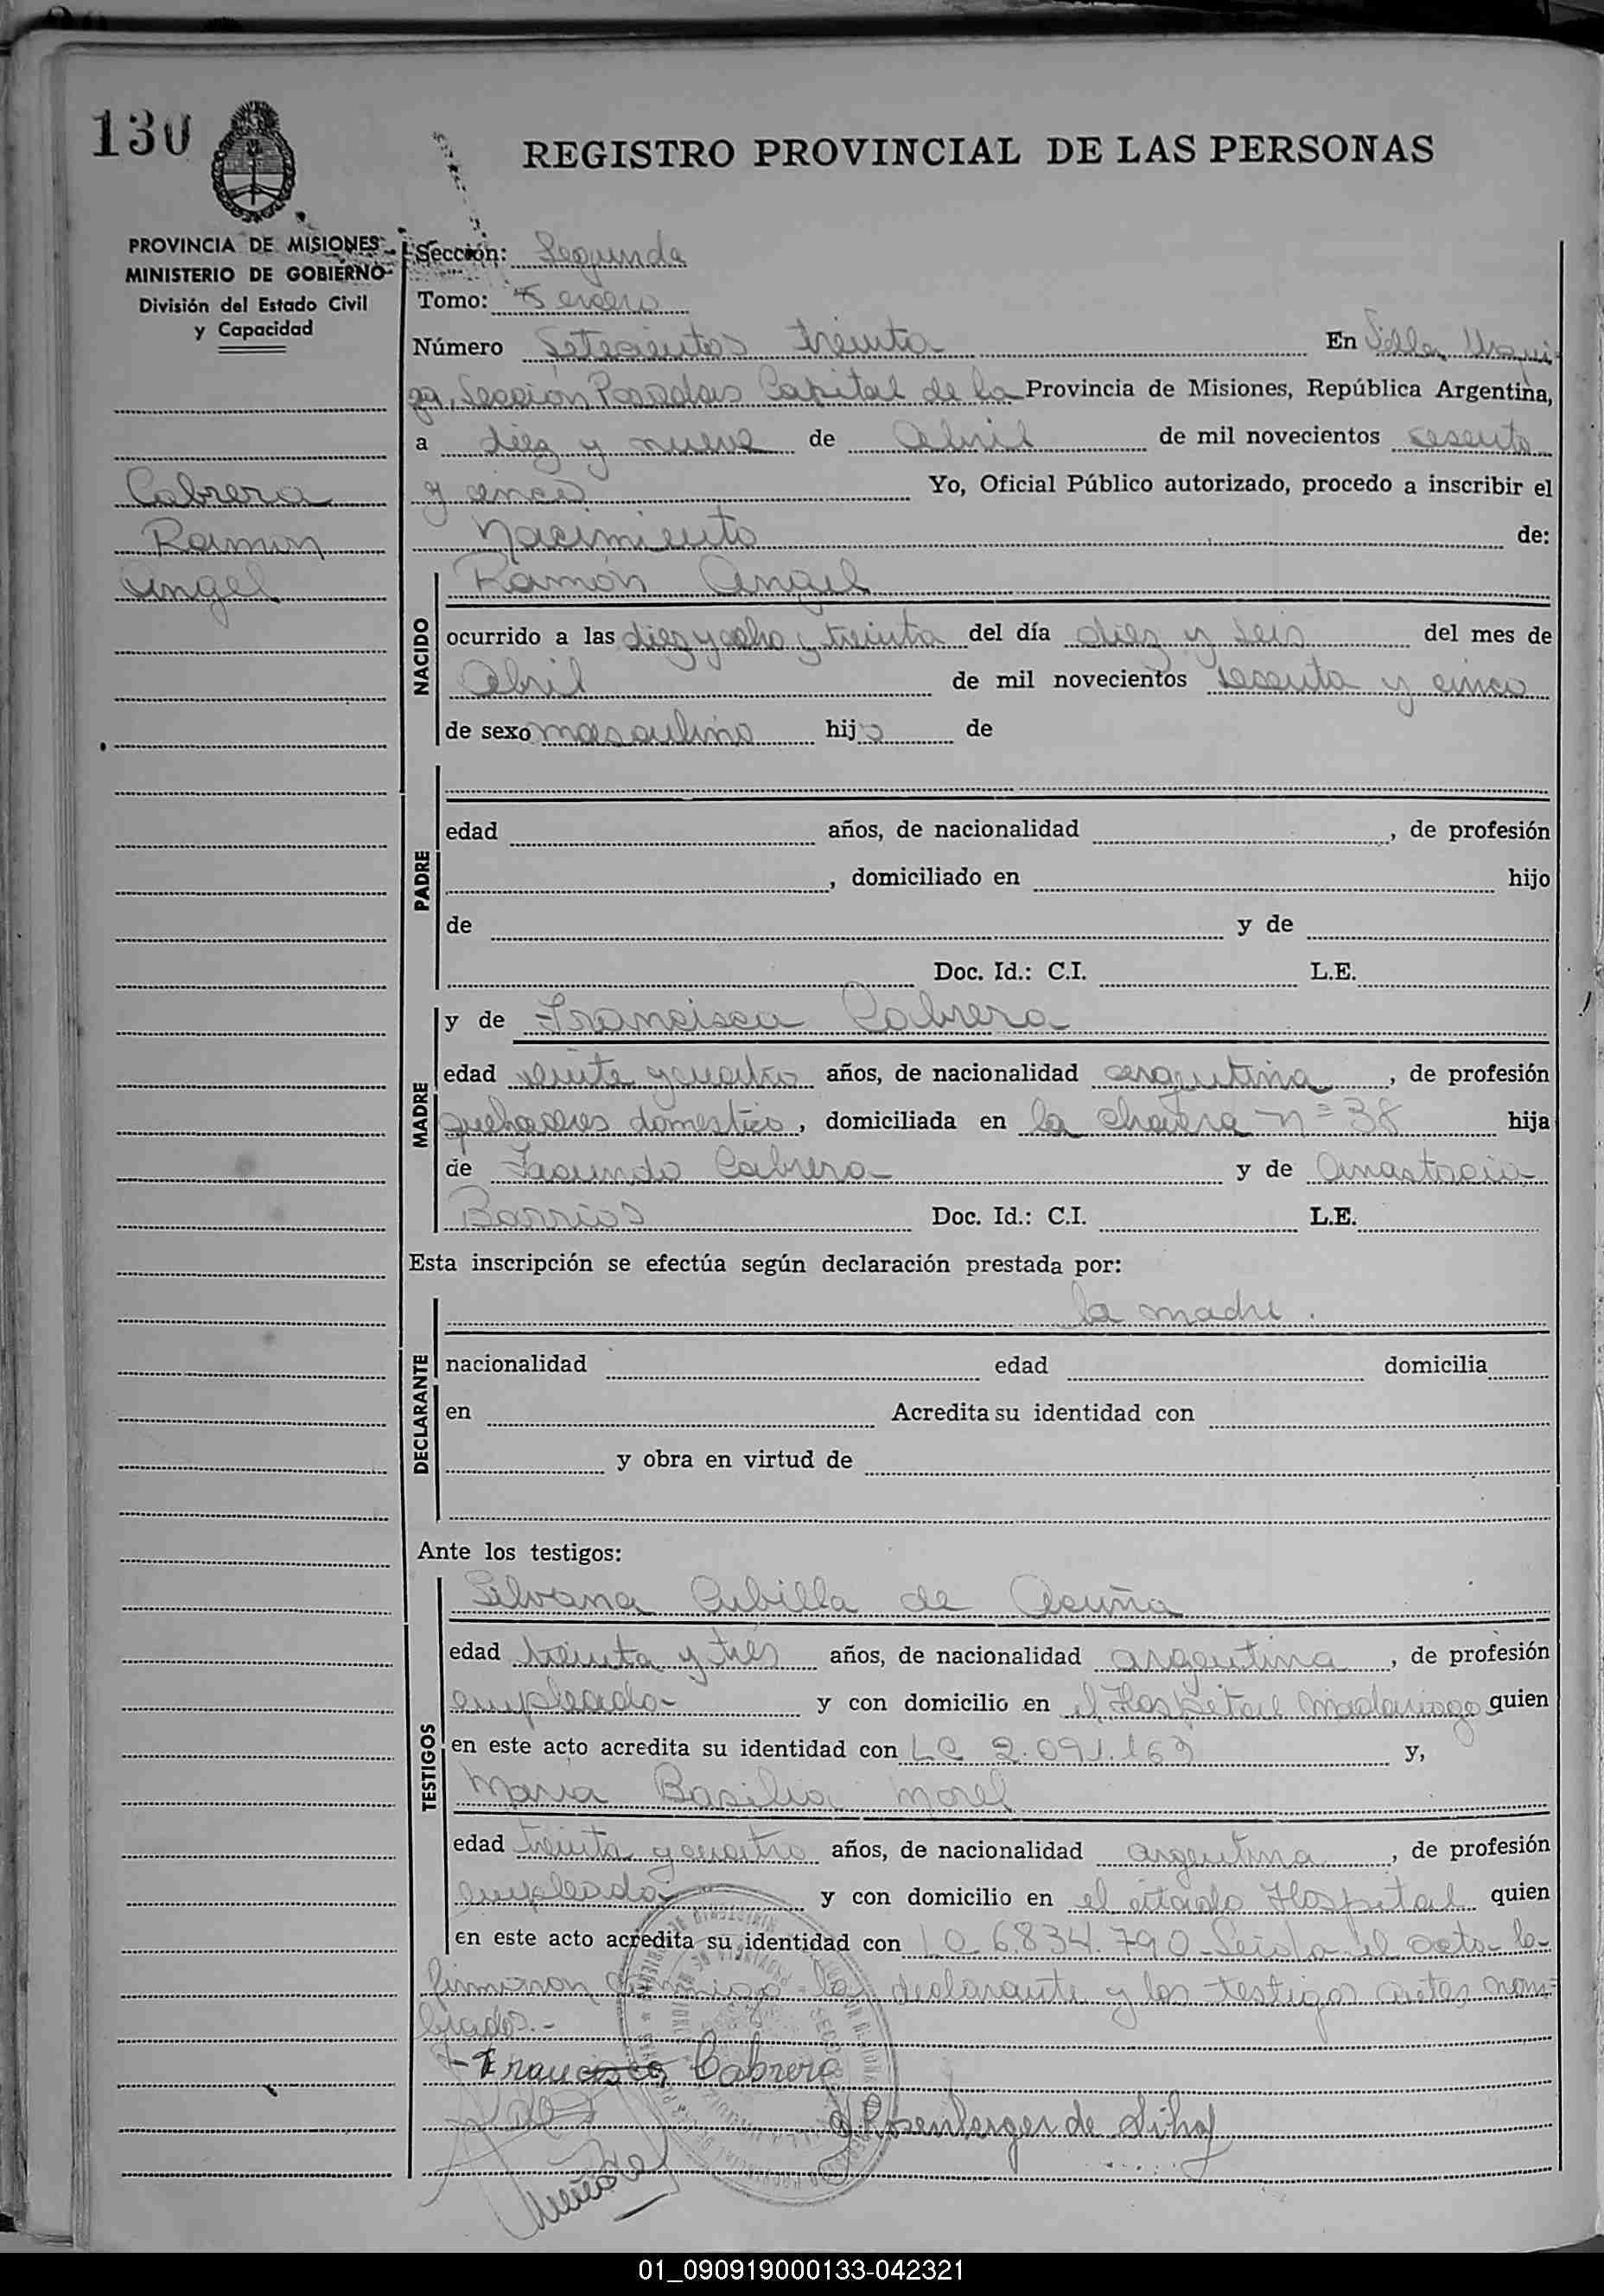 130
REGISTRO PROVINCIAL DE LAS PERSONAS
PROVINCIA DE MISIONES
MINISTERIO DE GOBIERNO
División del Estado Civil
y Capacidad
Cabrera
Ramon
Angel
Sección: Segunda
Tomo: Tercero
Número Setecientos treinta En Villa Urqui
za, Sección Posadas Capital de la Provincia de Misiones, República Argentina,
a diez y nueve de Abril de mil novecientos sesenta
y cinco Yo, Oficial Público autorizado, procedo a inscribir el
Nacimiento de:
NACIDO
Ramón Angel
ocurrido a las diez y ocho y treinta del día diez y seis del mes de
Abril de mil novecientos sesenta y cinco
de sexo masculino hijo de
PADRE
edad años, de nacionalidad , de profesión
, domiciliado en hijo
de y de
Doc. Id.: C.I. L.E.
MADRE
y de Francisca Cabrera
edad veinte y cuatro años, de nacionalidad argentina, de profesión
quehaceres domestico, domiciliada en la chacra nº 38 hija
de Facundo Cabrera y de Anastacia
Barrios Doc. Id.: C.I. L.E.
Esta inscripción se efectúa según declaración prestada por:
DECLARANTE
la madre.
nacionalidad edad domicilia
en Acredita su identidad con
y obra en virtud de
Ante los testigos:
TESTIGOS
Silvana Cubilla de Acuña
edad treinta y tres años, de nacionalidad argentina, de profesión
empleada y con domicilio en el Hospital Madariaga quien
en este acto acredita su identidad con LC 2.091.169 y,
Maria Basilia Morel
edad treinta y cuatro años, de nacionalidad argentina, de profesión
empleada y con domicilio en el citado Hospital quien
en este acto acredita su identidad con LC 6.834.790-Leida el acta la
firmaron conmigo la declarante y los testigos antes nom=
brados.-
Francisca Cabrera
Rosenberger de
01_090919000133-042321